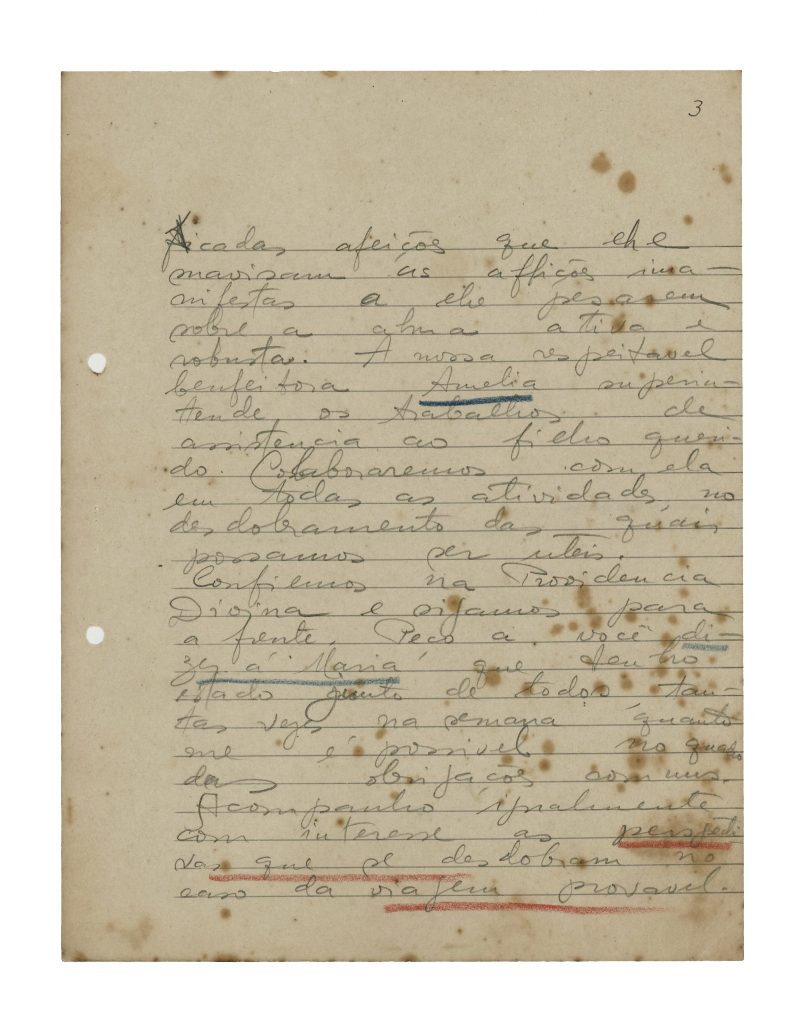 3
ficadas afeições que ele
mavisam as afflições ima-
nifestas a ele pesarem
sobre a alma ativa e
robusta. A nossa respeitavel
benfeitora Amelia superin-
tende os trabalhos de
assistencia ao filho queri-
do. Colaboraremos com ela
em todas as atividades, no
desdobramento das quais
possamos ser uteis.
Confiemos na Providencia
Divina e sigamos para
a frente. Peço a você di-
zer á Maria que tenho
estado junto de todos tan-
tas vezes na semana quanto
me é possivel no quadro
das obrigações comuns.
Acompanho igualmente
com interesse as perspéti
vas que se desdobram no
caso da viagem provavel.